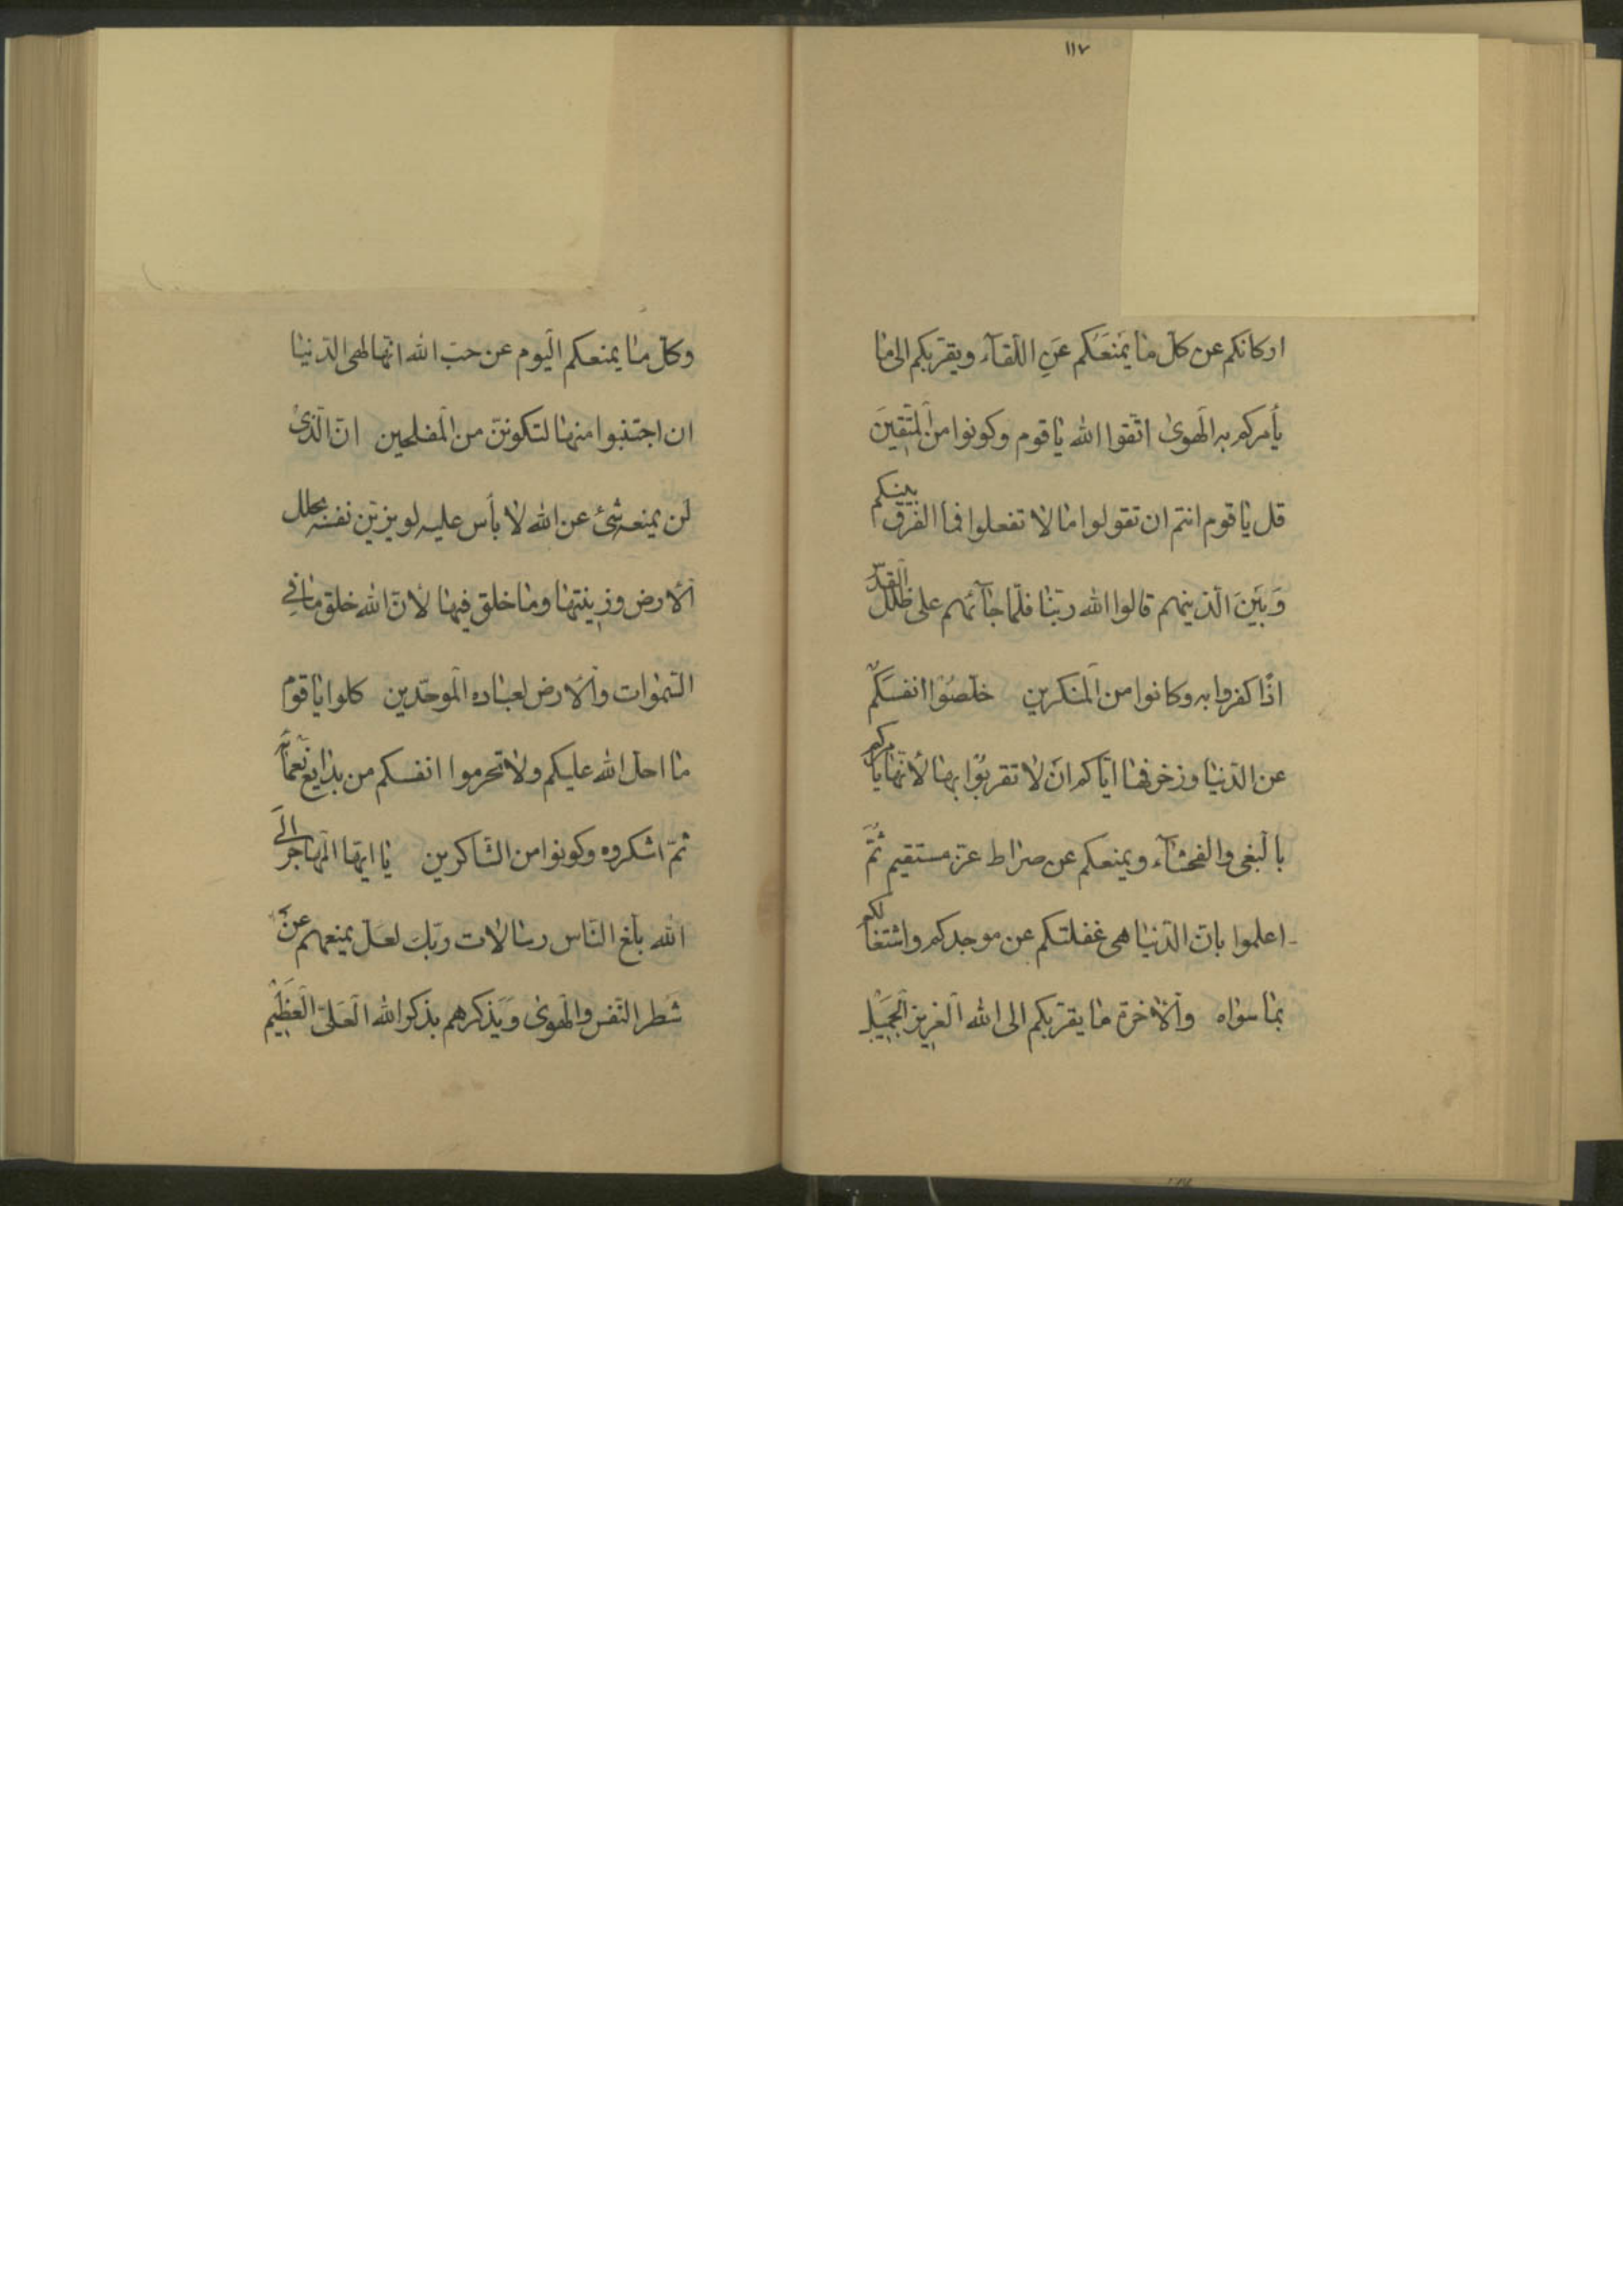 ١١٧
اركانكم عن كلّ ما يَمنَعَكم عَنِ اللّقآء ويقرّبكم الى ما
يأمركم به الهوىٰ اتّقوا الله يا قوم وكونوا من المتّقينَ
قل يا قوم انتم ان تقولوا ما لا تفعلوا فما الفرق بينكم
وَبَينَ الّذينهم قالوا الله ربّنا فلمّا جآئهم على ظلل القدس
اذًا كفروا به وكانوا من المنكرين خلّصُوا انفسَكم
عن الدّنيا وزخرفها ايّاكم ان لا تقربُوا بها لأنّها يأمركم
بالبغى والفحشآء ويمنعكم عن صراط عزّ مستقيم ثُمَّ
اعلموا بانّ الدّنيا هى غفلتكم عن موجدكم واشتغالكم
بما سواه والآخرة ما يقرّبكم الى الله العزيز الجميل
وكلّ ما يمنعكم اليوم عن حبّ الله انّها لهى الدّنيا
ان اجتنبوا منها لتكوننّ من المفلحين انّ الّذى
لن يمنعه شئ عن الله لا بأس عليه لو يزيّن نفسه بحلل
الأرض وزينتها وما خلق فيها لأنّ الله خلق ما فى
السّموات والأرض لعباده الموحّدين كلوا يا قوم
ما احلّ الله عليكم ولا تحرموا انفسكم من بدايع نعمائه
ثمّ اشكروه وكونوا من الشّاكرين يا ايّها المهاجر الى
الله بلّغ النّاس رسالات ربّك لعلّ يمنعهم عن
شَطر النّفس والهوىٰ وَيذكرهم بذكر الله العَلىّ العَظِيم